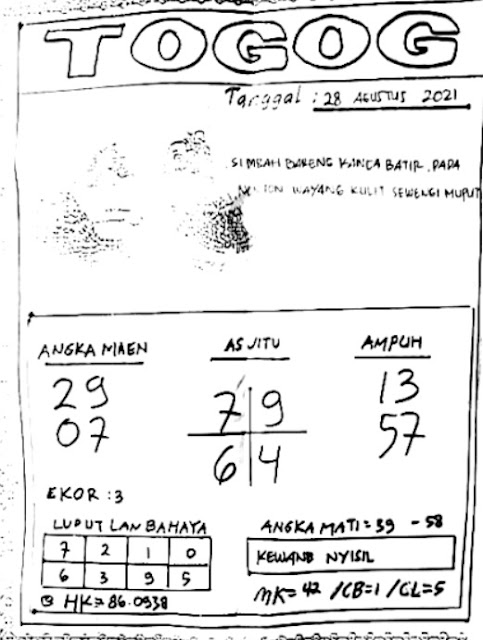 TOGOG
Tanggal : 28 AGUSTUS 2021
SIMBAH BARENG KANCA BATIR, PADA
WAYANG KULIT SEWENGI MUPUT
ANGKA MAEN
AS JITU
AMPUH
29
7 9
13
07
6 4
57
EKOR : 3
LUPUT LAN BAHAYA
ANGKA MATI = 39 - 58
7 2 1 0
KEWAND NYISIL
6 3 9 5
HK = 86.0938
MK = 42 / CB = 1 / CL = 5